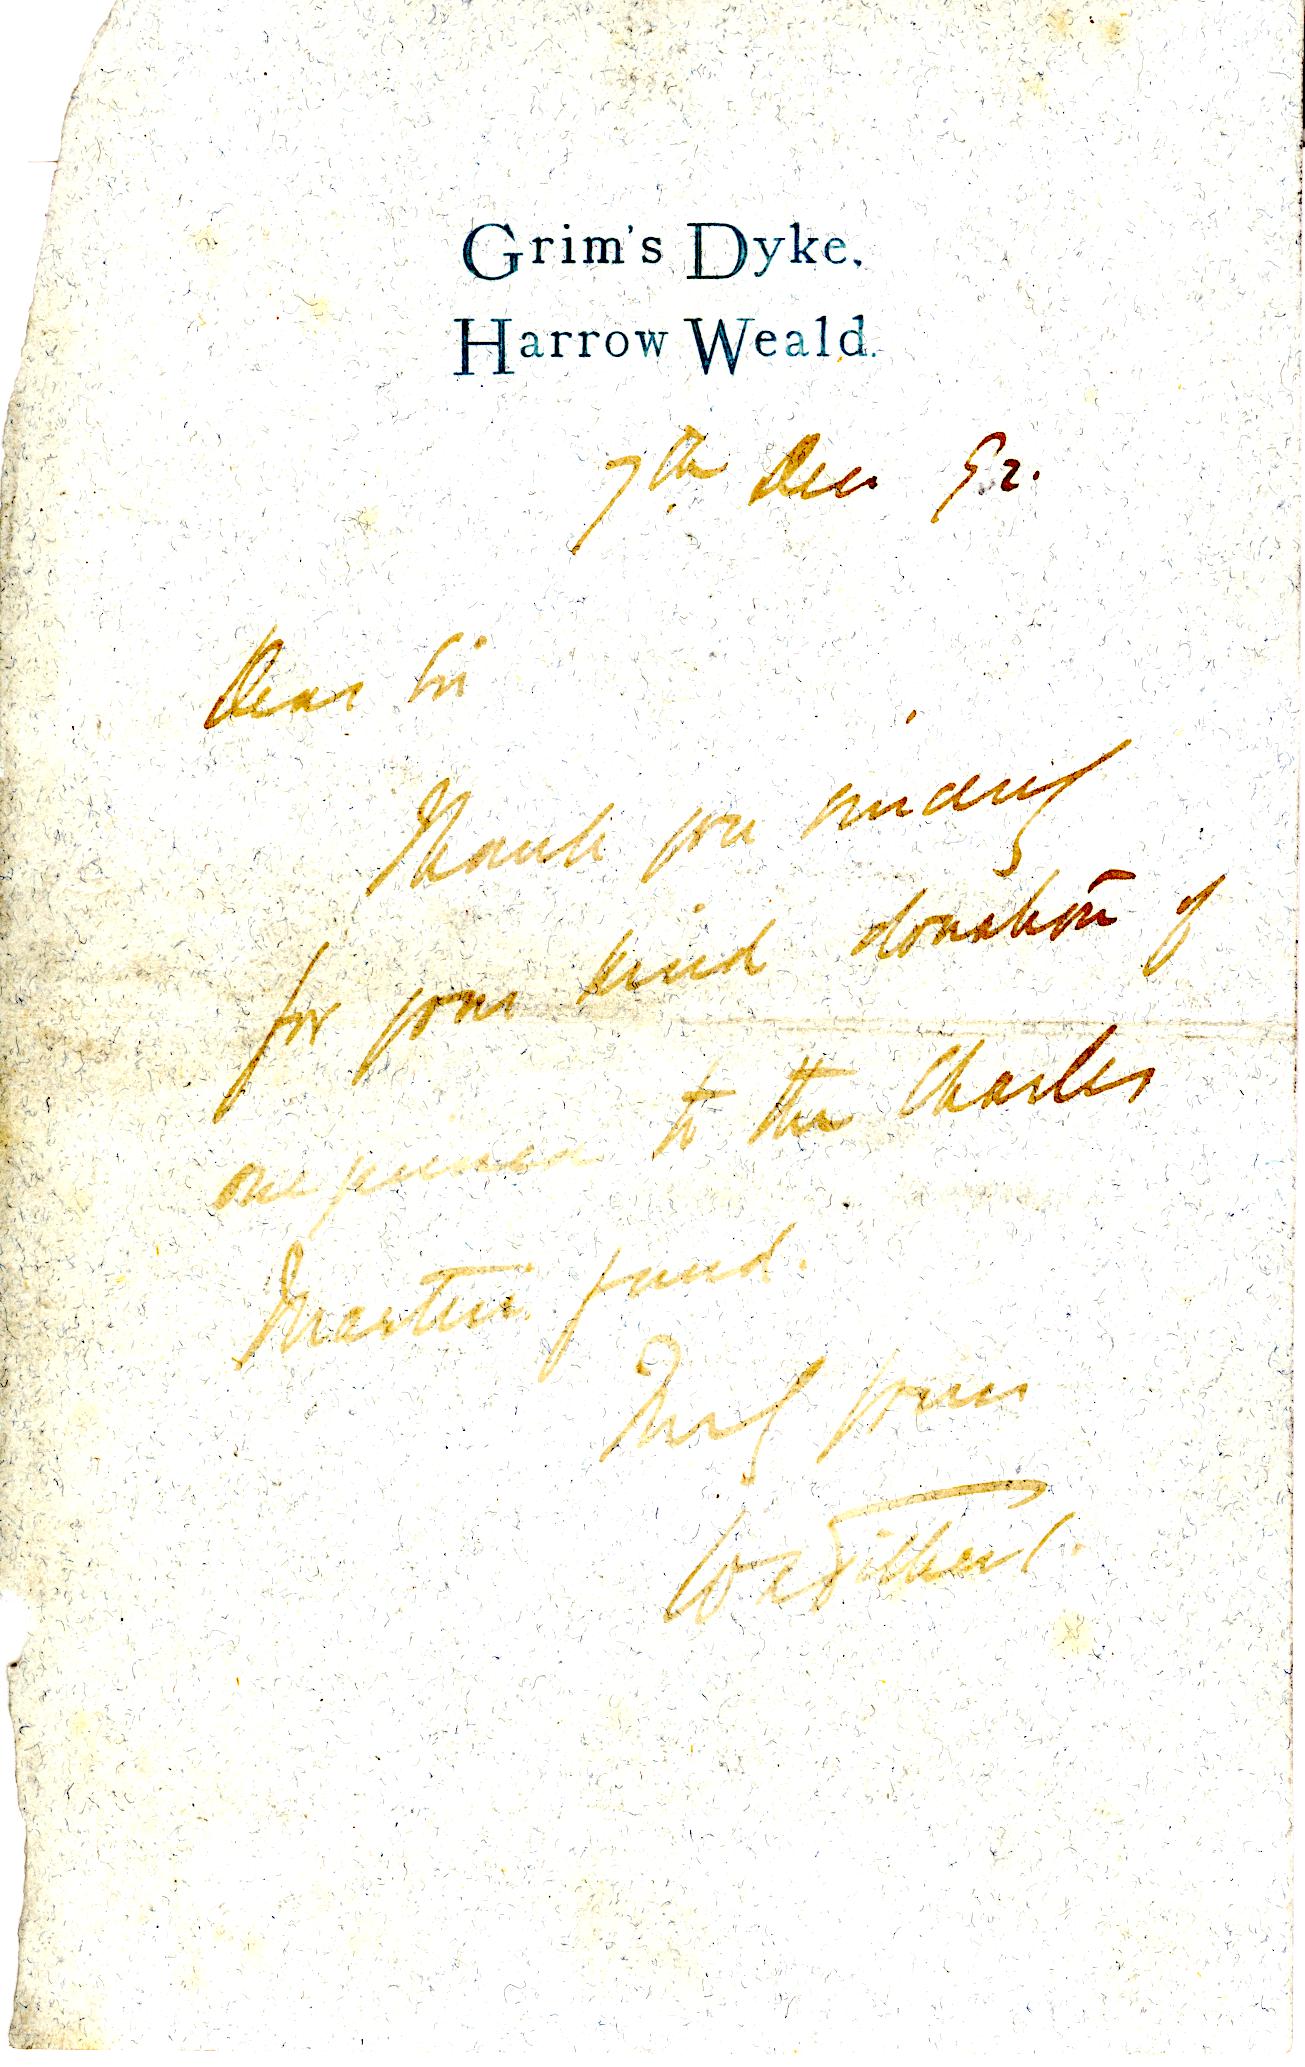 Grim's Dyke,
Harrow Weald.
7th Dec 92.
Dear Sir
Thank you sincerely
for your kind donation of
one guinea to the Charles
Martin fund.
Truly yours
WSGilbert.